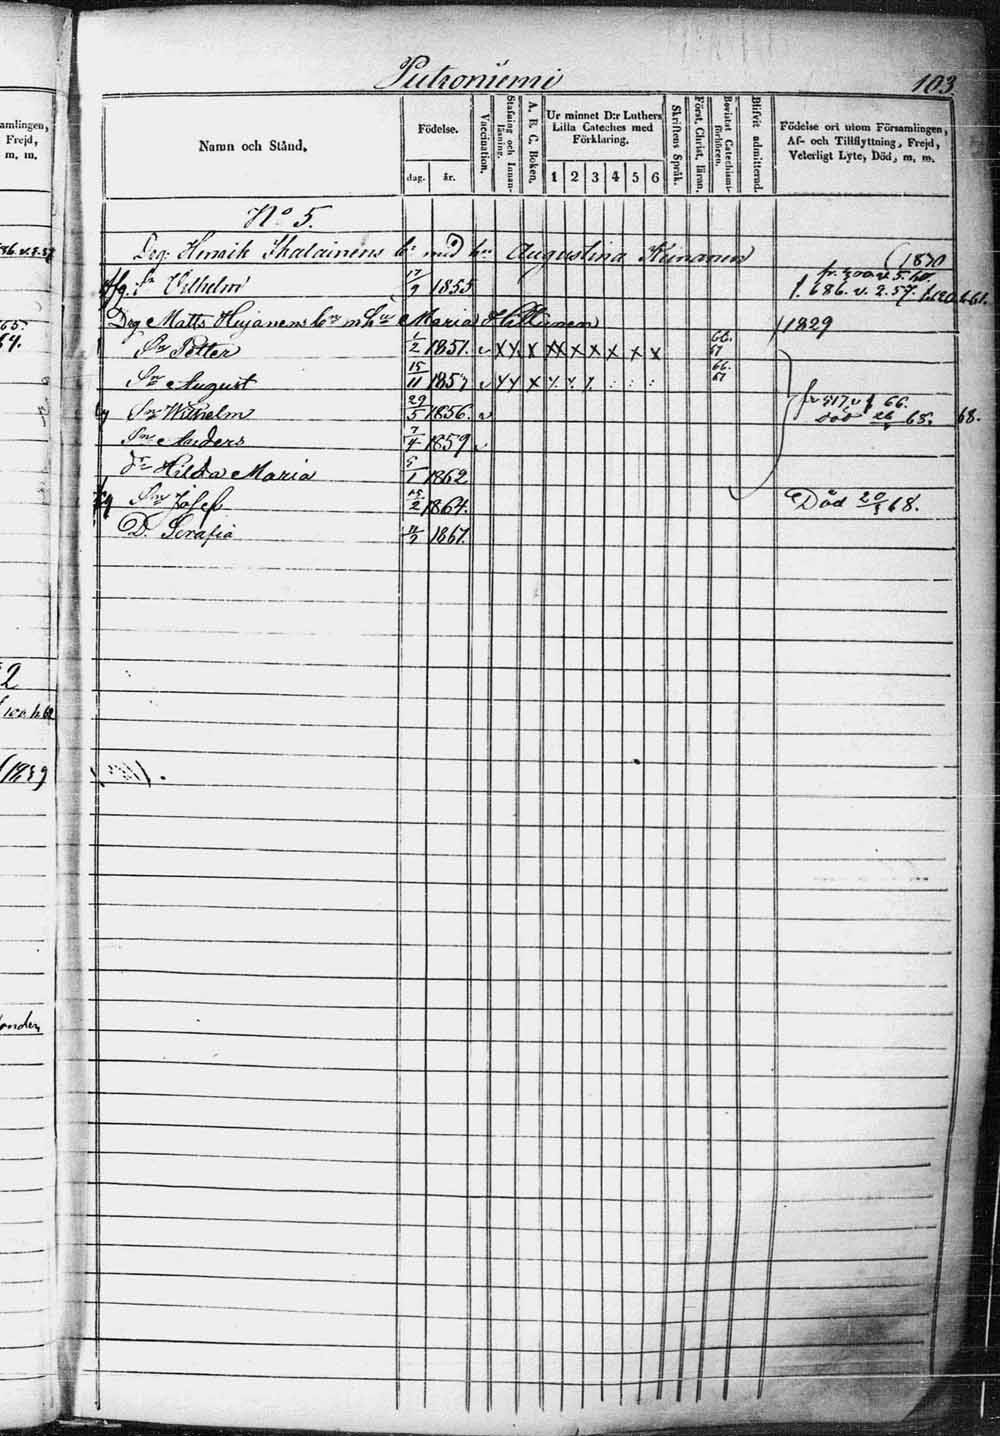 Putroniemi 103
Namn och Stånd.
Födelse.
dag. år.
Vaccination.
Stafning och Innanläsning.
A. B. C. Boken.
Ur minnet D:r Luthers
Lilla Cateches med
Förklaring.
1 2 3 4 5 6
Skriftens Språk.
Först. Christ. läran.
Bevistat Catechismiförhören.
Blifvit admitterad.
Födelse ort utom Församlingen,
Af- och Tillflyttning, Frejd,
Veterligt Lyte, Död, m. m.
No 5.
Deg: Henrik Ihalainens bn med hu Augustina Keinanen (1830
Sn Vilhelm 17/9 1855 fr. 200 v. 5. 60
f. 686. v. 2. 57.
Deg Matts Heijanens bn m hu Maria (1829
Sn Petter 1/2 1851. x x x x x x x x x x 66. 67
Sn August 15/11 1857 x x x 66. 67
Sn Wilhelm 29/5 1856. fr 517 v 66.
Död 68. 68.
Sn Anders 7/4 1859
Dr Hilda Maria 5/1 1862
Sn Josef 15/2 1864. Död 20/5 68.
D. Serafia 1867.
amlingen,
Frejd,
m. m.
65.
2
(1839